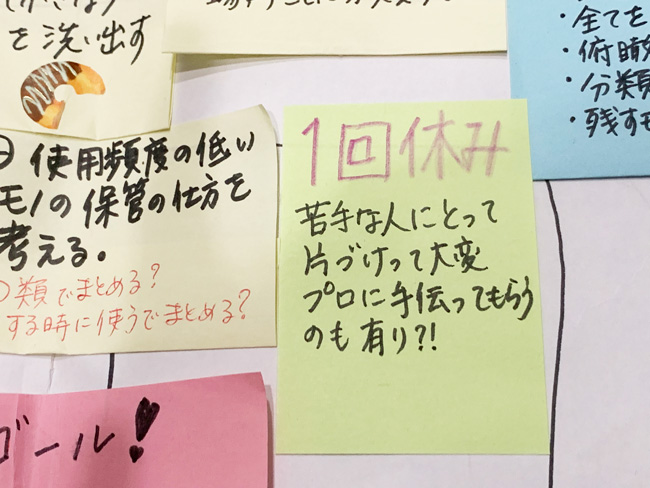 を洗い出す
使用頻度の低い
モノの保管の仕方を
考える。
類でまとめる?
する時に使うでまとめる?
ゴール!
1回休み
苦手な人にとって
片づけって大変
プロに手伝ってもらう
のも有り?!
・全てを
・俯瞰
・分類
・残すモ